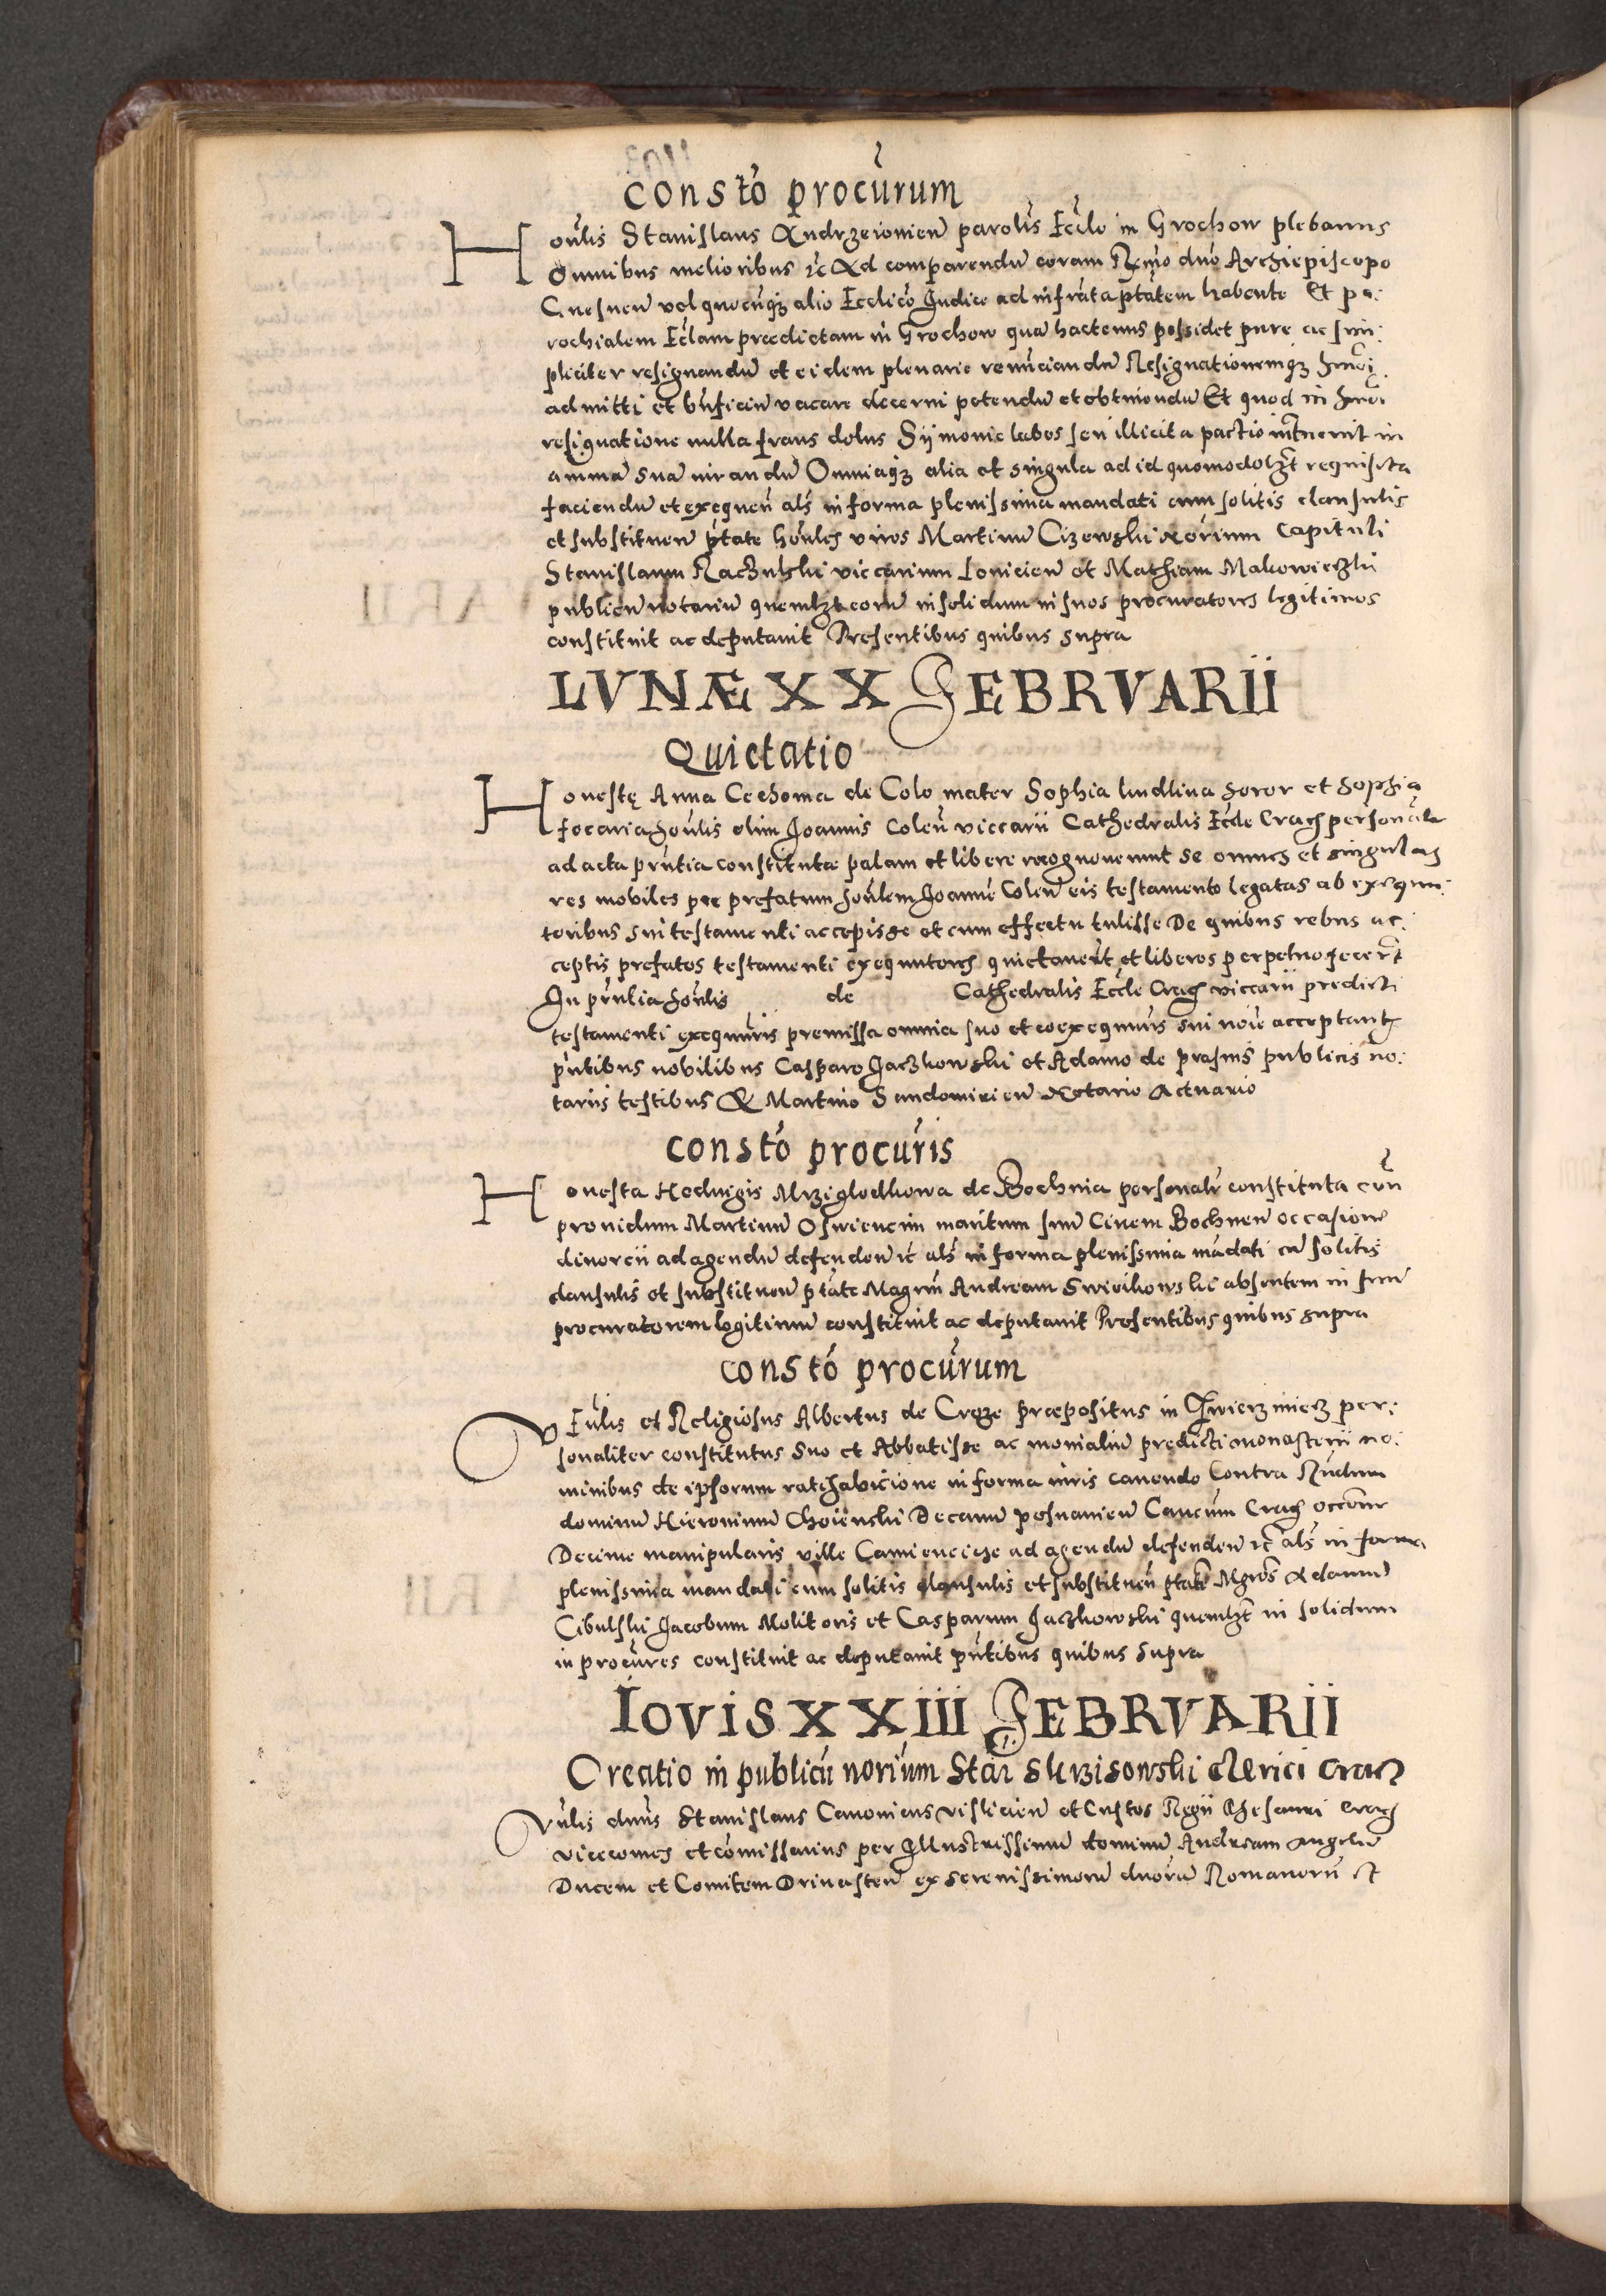 Consto procurum
Honlis Stanislaus Andrzeiovien parolis Eccle in Grochow plebanus
Omnibus melioribus etc Ad comparendu coram Rmo dno Archiepiscopo
Gnesnen vel quocunq alio Ecclico Judice ad infrata ptatem habente Et pa:
rochialem Eclam praedictam in Grochow qua hactenus possidet pure ac sim:
pliciter resignandu et eidem plenarie renuciandu Resignationemq hmoi
admitti et bnficiu vacare decerni petendu et obtinendu Et quod in hmoi
resignatione nulla fraus dolus Sijmonie labes seu illicita pactio intnenit in
animã sua iurandu Omniaq alia et singula ad id quomodolzt requisita
faciendu et exequen als in forma plenissima mandati cum solitis clausulis
et substituen ptate honles viros Martinu Cizewski notarium Capituli
Stanislaum Raczulski viccarium Lovicien et Mathiam Makowieczki
publicu notariu quemlzt eoru insolidum in suos procuratores legitimos
constituit ac deputauit Presentibus quibus supra
LVNÆ XX FEBRVARII
Quietatio
Honestę Anna Cechowa de Colo mater Sophia ludlina soror et Sophia
focaria honlis olim Joannis Colen viccarii Cathedralis Eccle Crac personalr
ad acta pntia constitutae palam et libere recognouerunt se omnes et singulas
res mobiles per prefatum honlem Joanne Colen eis testamento legatas ab exequu:
toribus sui testamenti accepisse et cum effectu tulisse De quibus rebus ac:
ceptis prefatos testamenti exequutores quietauert et liberos perpetuo fecert
In pntia honlis de Cathedralis Eccle Crac viccarii predicti
testamenti exequuris premissa omnia suo et coexequuris sui noie acceptant
pntibus nobilibus Casparo Jaczkowski et Adamo de prasnis publicis no:
tariis testibus & Martino Sandomirien Notario Actuario
Consto procuris
Honesta Hedvigis Mrziglodkowa de Bochnia personalr constituta con
prouidum Martinu Oswiencim maritum suu Ciuem Bochnen occasione
diuorcii ad agendu defenden etc als in forma plenissima madati cu solitis
clausulis et substituen ptate Magrm Andream Swieikowski absentem in suu
procuratorem legitimu constituit ac deputauit Presentibus quibus supra
Consto procurum
Venlis et Religiosus Albertus de Crege praepositus in Zwierziniecz per:
sonaliter constitutus Suo et Abbatisse ac monialiu predicti monasterii no:
minibus de ipsorum ratihabicione in forma iuris cauendo Contra Rndum
dominu Hieronimu Choienski Decanu posnanien Cancum Crac occone
Decime manipularis ville Camiencicze ad agendu defenden etc als in forma
plenissima mandati cum solitis clausulis et substituen ptate Mgros Adamu
Cibulski Jacobum Molitoris et Casparum Jaczkowski quemlzt in solidum
in procures constituit ac deputauit pntibus quibus supra
IOVIS XXIII FEBRVARII
Creatio in publicu norium Stai Skrzisowski clerici Crac
Vnlis dnus Stanislaus Canonicus vislicien et Custos Regii Thesauri Crac
vicecomes et comissarius per Illustrissimu dominu Andream Angelu
Ducem et Comitem Driuasten ex Serenissimoru dnoru Romanoru